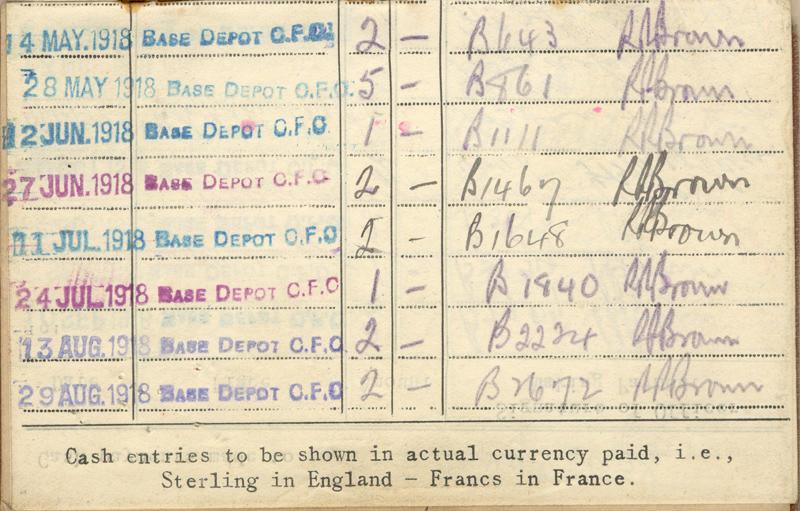 14 MAY.1918 BASE DEPOT C.F.C. 2 - B643 RABrown
28 MAY 1918 BASE DEPOT C.F.C. 5 - B861 RABrown
12 JUN.1918 BASE DEPOT C.F.C 1 - B1111 RABrown
27 JUN.1918 BASE DEPOT C.F.C 2 - B1467 RABrown
11 JUL.1918 BASE DEPOT C.F.C 2 - B1648 RABrown
24 JUL.1918 BASE DEPOT C.F.C 1 - B1840 RABrown
13 AUG.1918 BASE DEPOT C.F.C. 2 - B2224 RABrown
29 AUG.1918 BASE DEPOT C.F.C 2 - B2672 RABrown
Cash entries to be shown in actual currency paid, i.e.,
Sterling in England - Francs in France.